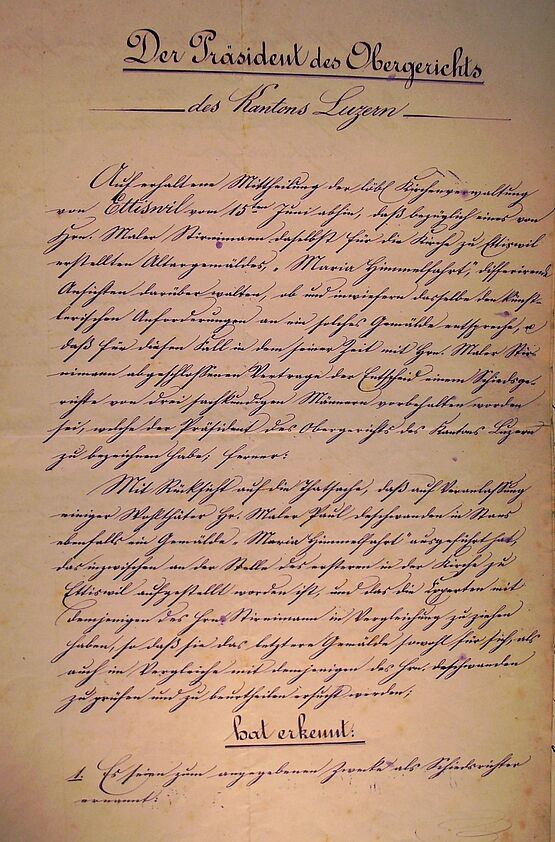 Der Präsident des Obergerichts
des Kantons Luzern
Auf erhaltene Mittheilung der löbl. Kirchenverwaltung
von Ettiswil vom 15ten Juni abhin, daß bezüglich eines von
Hrn. Maler Stirnimann daselbst für die Kirche zu Ettiswil
erstellten Altargemäldes, "Maria Himmelfahrt", differirende
Ansichten darüber walten, ob und inwiefern dasselbe den künst-
lerischen Anforderungen an ein solches Gemälde entspreche, &
daß für diesen Fall in dem seiner Zeit mit Hrn. Maler Stir-
nimann abgeschlossenen Vertrage der Entscheid einem Schiedsge-
richte von drei sachkundigen Männern vorbehalten worden
sei, welche der Präsident des Obergerichts des Kantons Luzern
zu bezeichnen habe, ferner:
Mit Rücksicht auf die Thatsache, daß auf Veranlassung
einiger Wohlthäter Hr. Maler Paul Deschwanden in Stans
ebenfalls ein Gemälde "Maria Himmelfahrt" ausgeführt hat,
das inzwischen an der Stelle des ersteren in der Kirche zu
Ettiswil aufgestellt worden ist, und das die Experten mit
demjenigen des Hrn. Stirnimann in Vergleichung zu ziehen
haben, so daß sie das letztere Gemälde sowohl für sich als
auch im Vergleiche mit demjenigen des Hrn. Deschwanden
zu prüfen und zu beurtheilen ersucht werden;
hat erkennt:
1. Es seien zum angegebenen Zwecke als Schiedsrichter
ernannt: